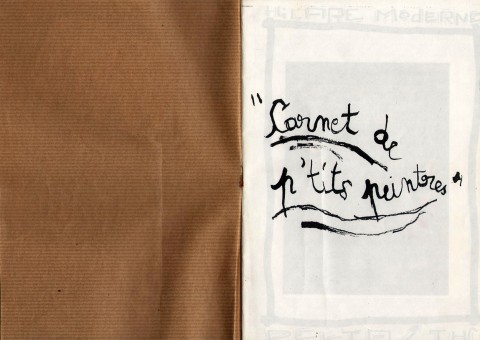 HILAIRE MODERNE
"Carnet de
p'tits peintres"